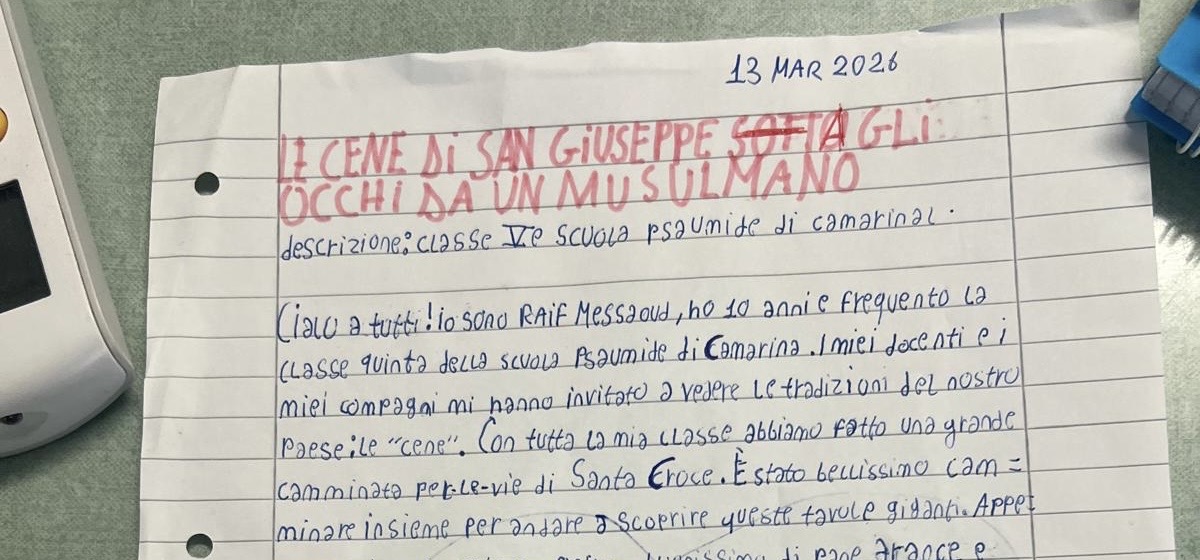 13 MAR 2026
LE CENE Di SAN GiUSEPPE SOTTA GLi
OCCHi DA UN MUSULMANO
descrizione: classe Ve scuola psaumide di camarinal.
Ciao a tutti! io sono RAiF Messaoud, ho 10 anni e frequento la
classe quinta della scuola Psaumide di Camarina. I miei docenti e i
miei compagni mi hanno invitato a vedere le tradizioni del nostro
paese: le "cene". Con tutta la mia classe abbiamo fatto una grande
camminata per-le-vie di Santa Croce. È stato bellissimo cam=
minare insieme per andare a scoprire queste tavole giganti. Appe
di pane arance e